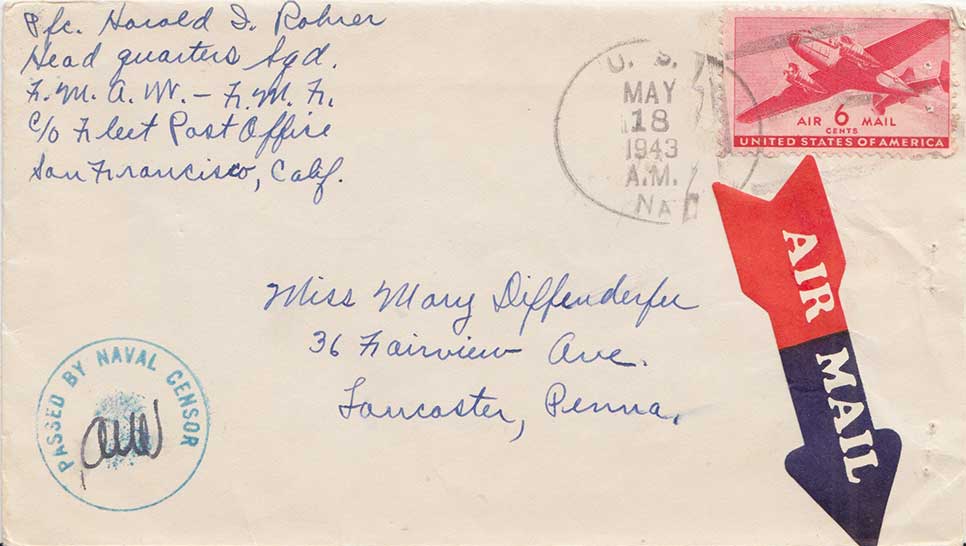 Pfc. Harold I. Rohrer
Head quarters Sqd.
F.M.A.W. – F.M.F.
c/o Fleet Post Office
San Francisco, Calif.
U. S.
MAY
18
1943
A.M.
NA
AIR 6 MAIL
CENTS
UNITED STATES OF AMERICA
AIR MAIL
Miss Mary Diffenderfer
36 Fairview Ave.
Lancaster, Penna.
PASSED BY NAVAL CENSOR